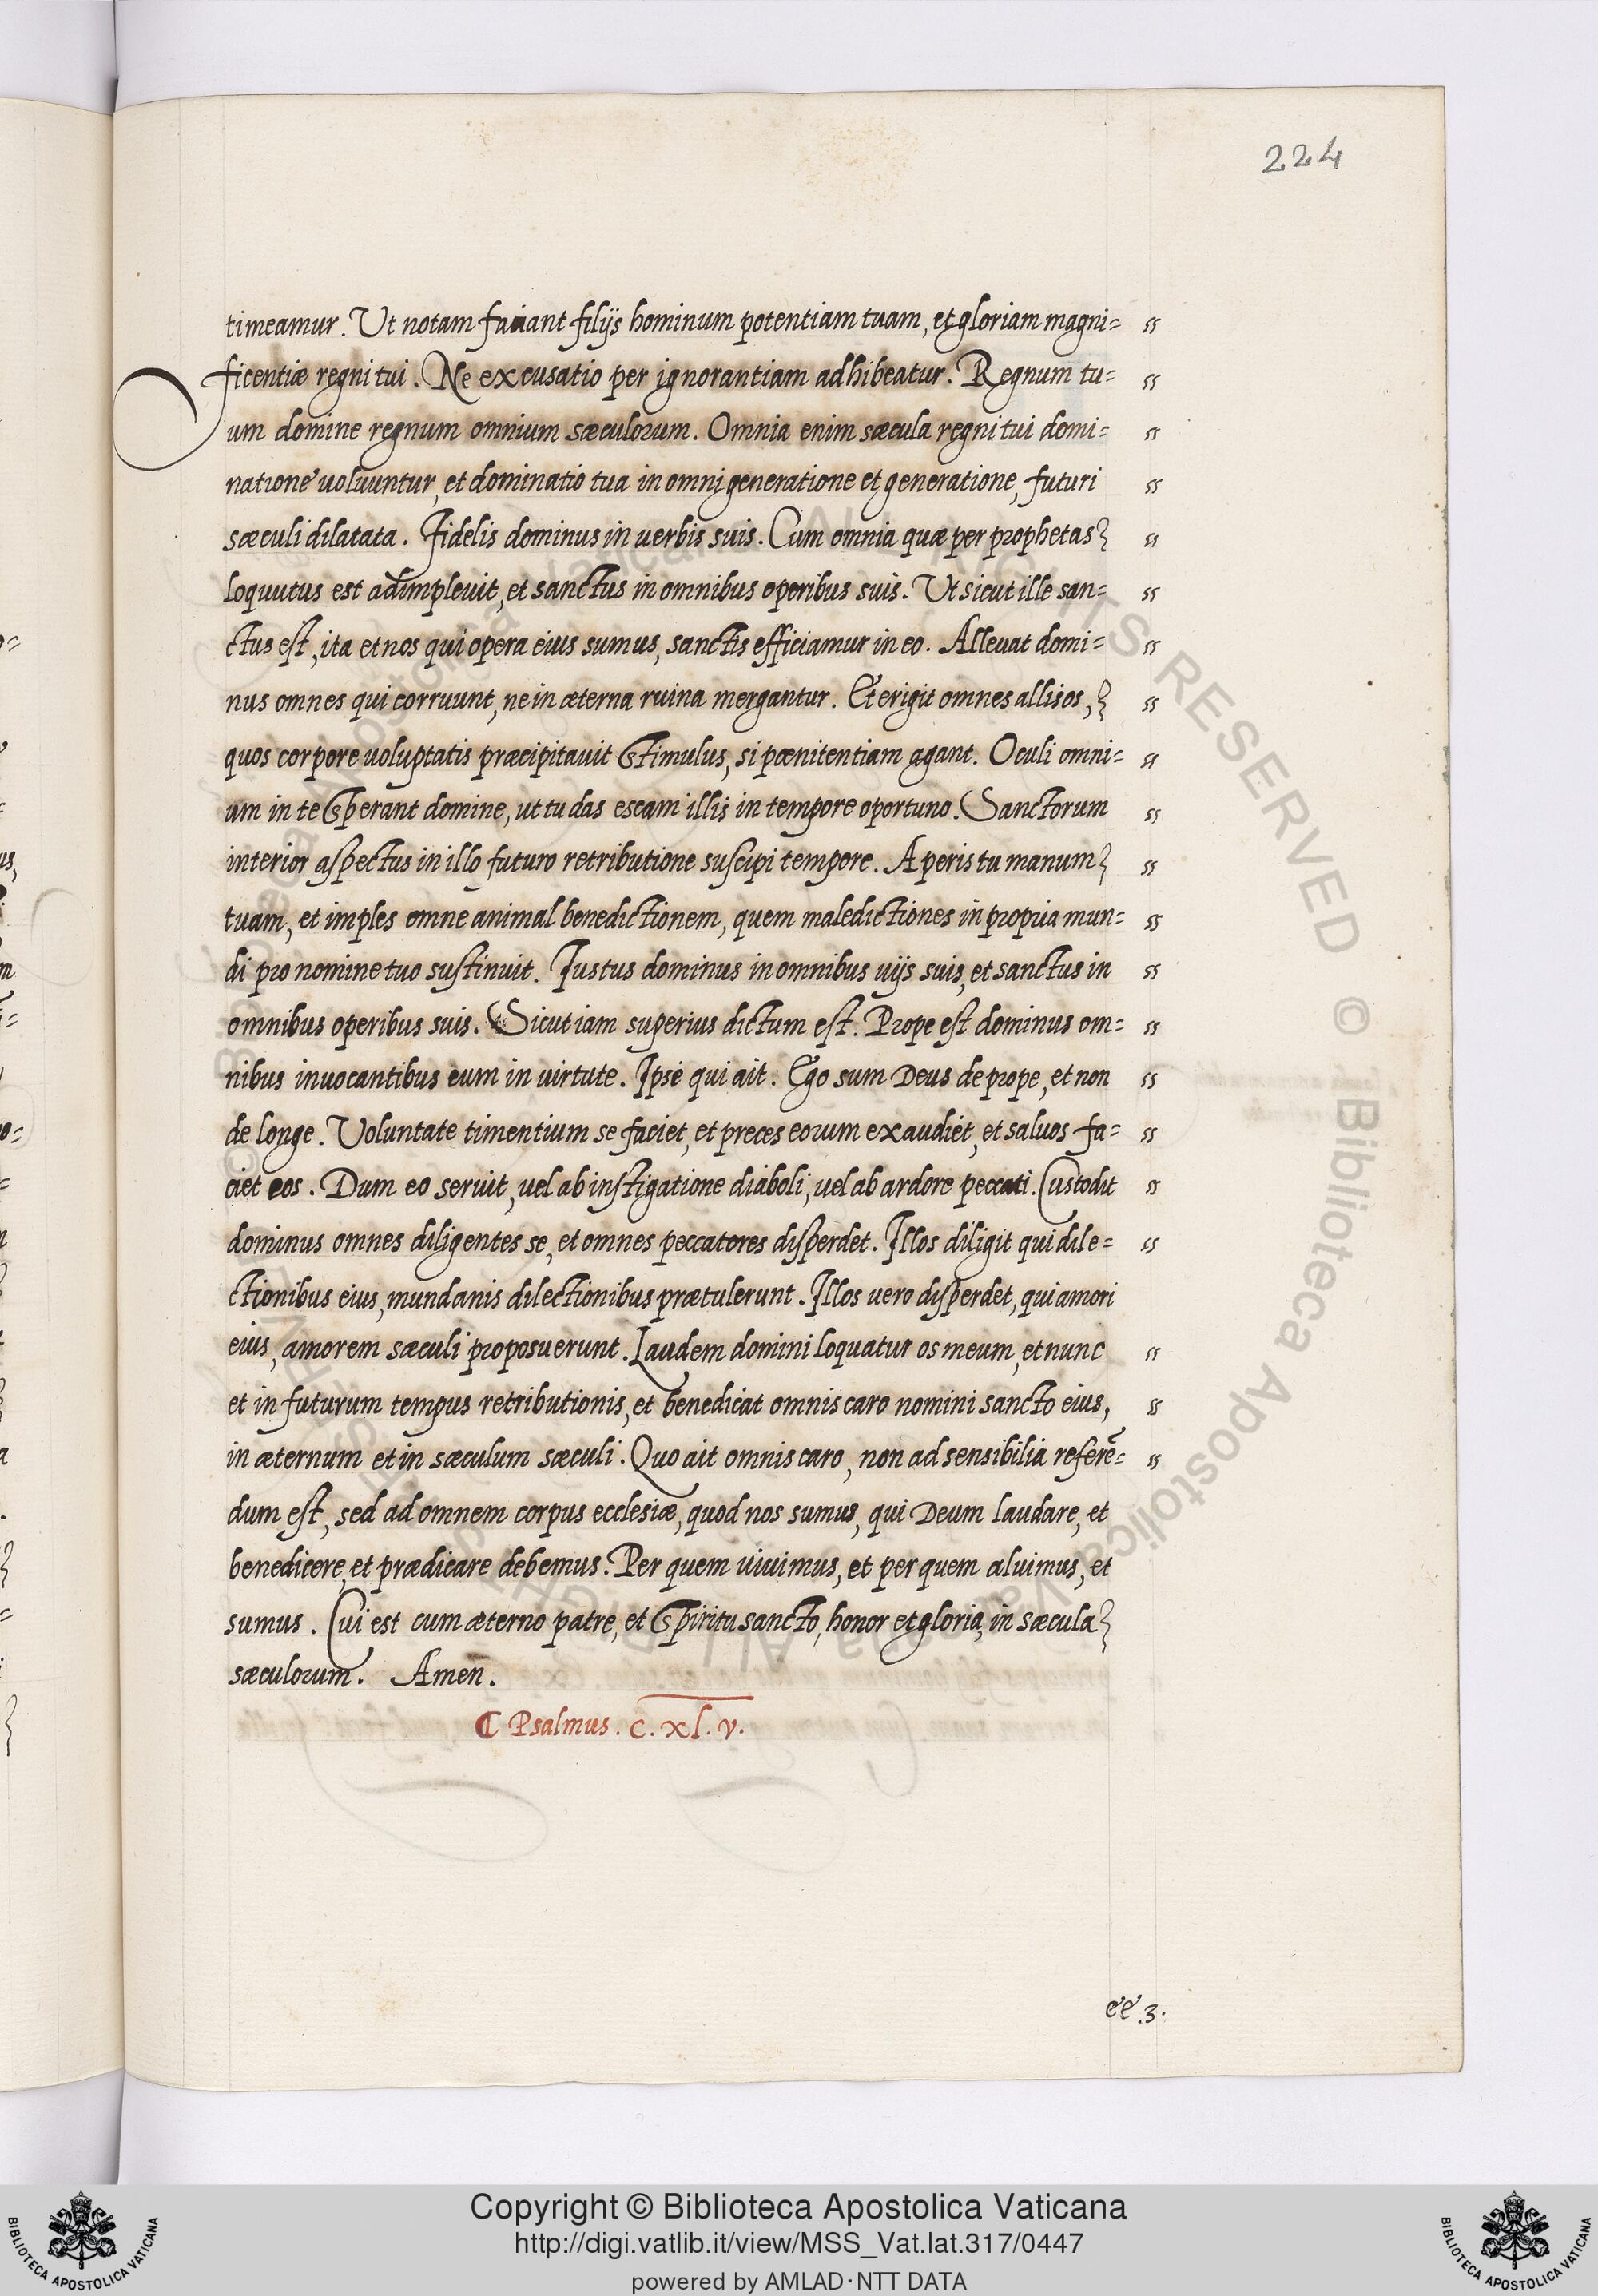 224
timeamur. Ut notam faciant filijs hominum potentiam tuam, et gloriam magni=
ficentiæ regni tui. Ne excusatio per ignorantiam adhibeatur. Regnum tu=
um domine regnum omnium sæculorum. Omnia enim sæcula regni tui domi=
natione uoluuntur, et dominatio tua in omni generatione et generatione, futuri
sæculi dilatata. Fidelis dominus in uerbis suis. Cum omnia quæ per prophetas
loquutus est adimpleuit, et sanctus in omnibus operibus suis. Ut sicut ille san=
ctus est, ita et nos qui opera eius sumus, sanctis efficiamur in eo. Alleuat domi=
nus omnes qui corruunt, ne in æterna ruina mergantur. Et erigit omnes allisos,
quos corpore uoluptatis præcipitauit stimulus, si pœnitentiam agant. Oculi omni=
um in te sperant domine, ut tu das escam illis in tempore oportuno. Sanctorum
interior aspectus in illo futuro retributione suscipi tempore. Aperis tu manum
tuam, et imples omne animal benedictionem, quem maledictiones in propria mun=
di pro nomine tuo sustinuit. Iustus dominus in omnibus uijs suis, et sanctus in
omnibus operibus suis. Sicut iam superius dictum est. Prope est dominus om=
nibus inuocantibus eum in uirtute. Ipse qui ait. Ego sum Deus de prope, et non
de longe. Voluntate timentium se faciet, et preces eorum exaudiet, et saluos fa=
ciet eos. Dum eo seruit, uel ab instigatione diaboli, uel ab ardore peccati. Custodit
dominus omnes diligentes se, et omnes peccatores disperdet. Illos diligit qui dile=
ctionibus eius, mundanis dilectionibus prætulerunt. Illos uero disperdet, qui amori
eius, amorem sæculi proposuerunt. Laudem domini loquatur os meum, et nunc
et in futurum tempus retributionis, et benedicat omnis caro nomini sancto eius,
in æternum et in sæculum sæculi. Quo ait omnis caro, non ad sensibilia referē=
dum est, sed ad omnem corpus ecclesiæ, quod nos sumus, qui Deum laudare, et
benedicere, et prædicare debemus. Per quem uiuimus, et per quem aluimus, et
sumus. Cui est cum æterno patre, et Spiritu sancto, honor et gloria, in sæcula
sæculorum. Amen.
¶ Psalmus. c. xl. v.
ee.3.
Copyright © Biblioteca Apostolica Vaticana
http://digi.vatlib.it/view/MSS_Vat.lat.317/0447
powered by AMLAD·NTT DATA